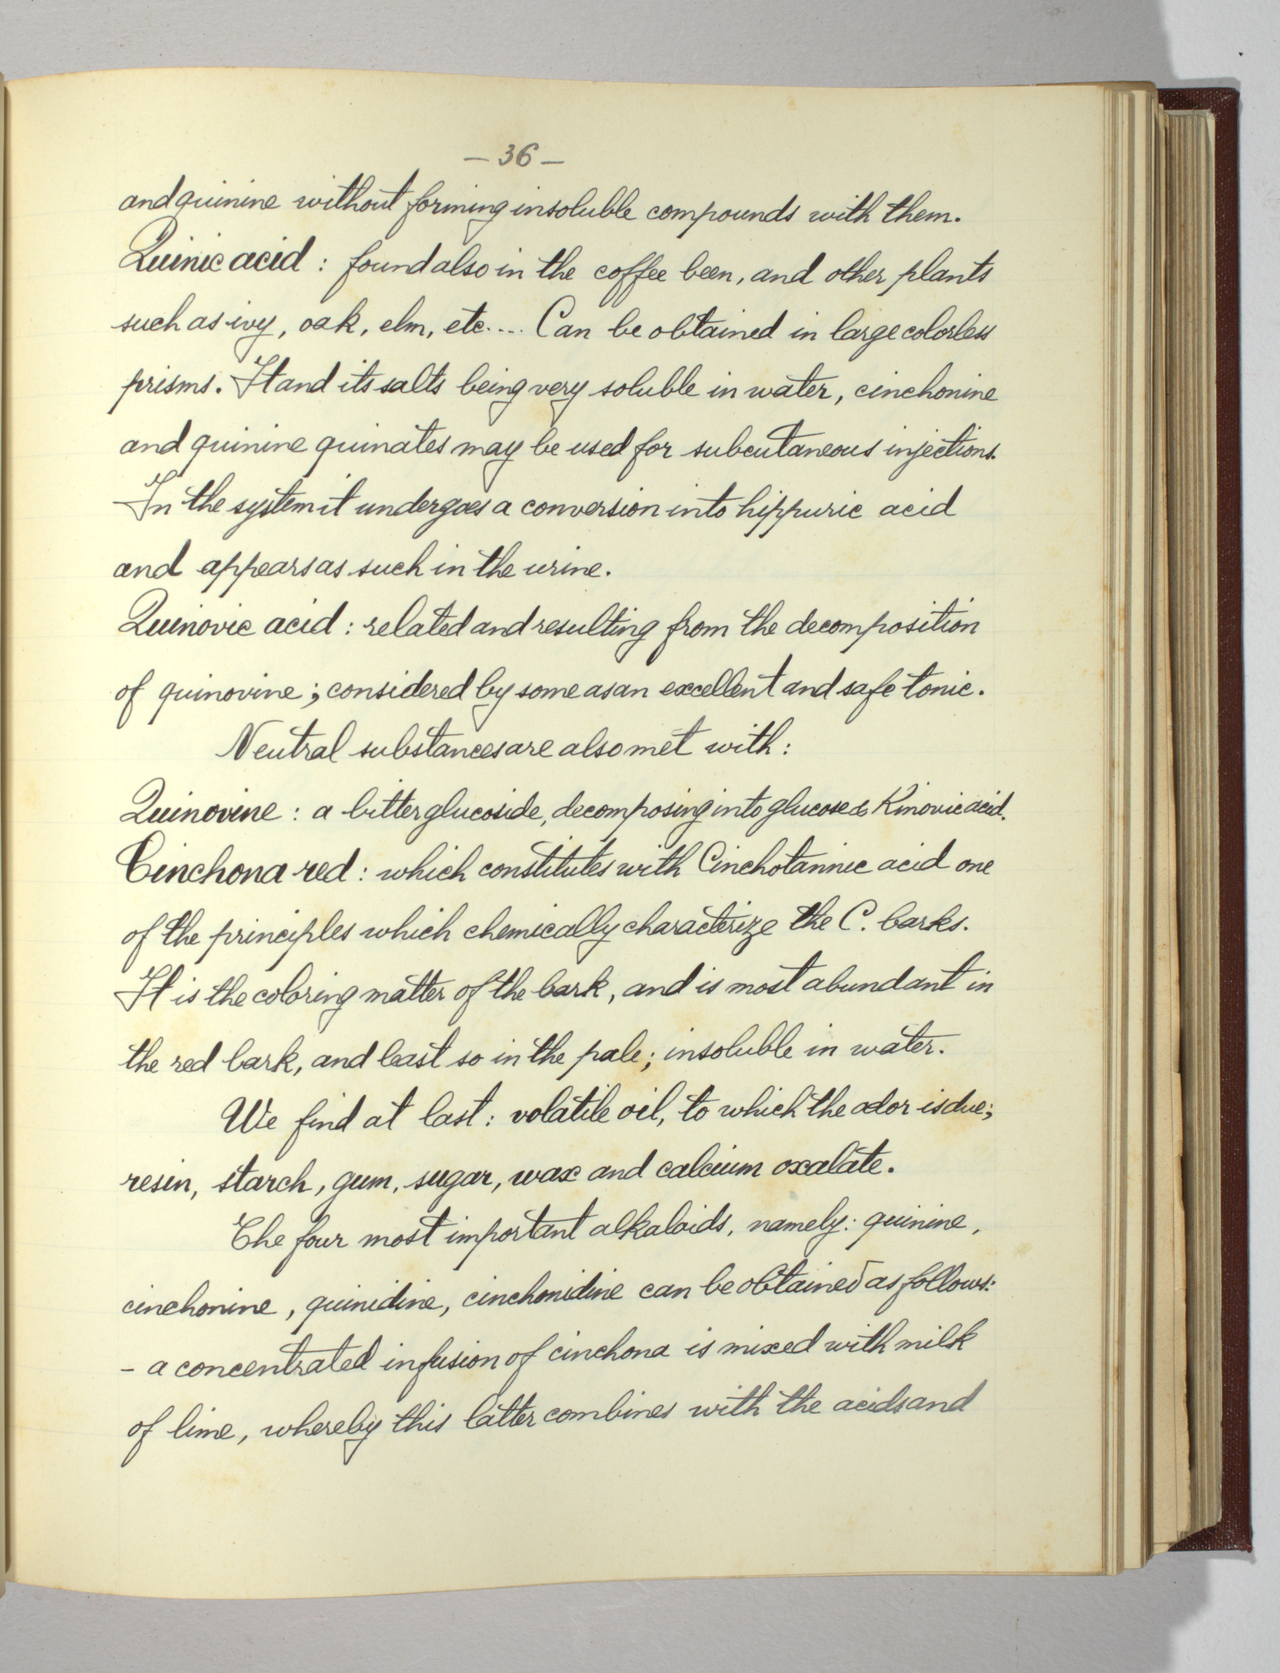 — 36 —
and quinine without forming insoluble compounds with them.
Quinic acid : found also in the coffee been, and other plants
such as ivy, oak, elm, etc.... Can be obtained in large colorless
prisms. It and its salts being very soluble in water, cinchonine
and quinine quinates may be used for subcutaneous injections.
In the system it undergoes a conversion into hippuric acid
and appears as such in the urine.
Quinovic acid : related and resulting from the decomposition
of quinovine ; considered by some as an excellent and safe tonic.
Neutral substances are also met with :
Quinovine : a bitter glucoside, decomposing into glucose & Kinovic acid.
Cinchona red : which constitutes with Cinchotannic acid one
of the principles which chemically characterize the C. barks.
It is the coloring matter of the bark, and is most abundant in
the red bark, and least so in the pale ; insoluble in water.
We find at last : volatile oil, to which the odor is due ;
resin, starch, gum, sugar, wax and calcium oxalate.
The four most important alkaloids, namely : quinine,
cinchonine, quinidine, cinchonidine can be obtained as follows :
– a concentrated infusion of cinchona is mixed with milk
of lime, whereby this latter combines with the acids and